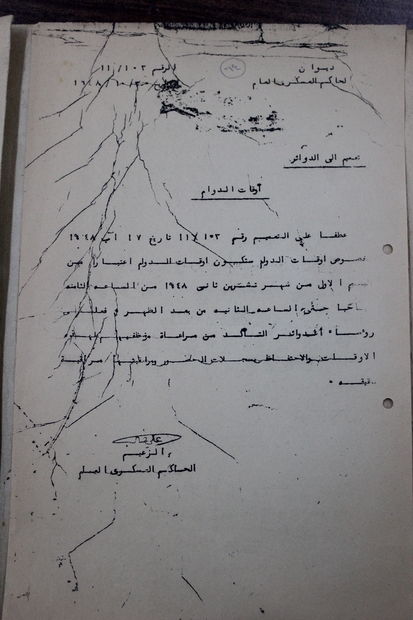 ديوان
الحاكم العسكري العام
الرقم ١١/١٠٢
١٩٤٨/١٠/٣٠
تعميم الى الدوائر
أوقات الدوام
عطفا على التعميم رقم ١١/١٥٣ تاريخ ١٧ آب ١٩٤٨
بخصوص اوقات الدوام ستكون اوقات الدوام اعتبارا من
الاول من شهر تشرين ثاني ١٩٤٨ من الساعه الثامنه
صباحا حتى الساعه الثانيه من بعد الظهر فعلى
رؤساء الدوائر التأكد من مراعاة موظفيهم
الاوقات والاحتفاظ بسجلات الحضور ومراقبتها مراقبة
دقيقه .
الزعيم
الحاكم العسكري العام